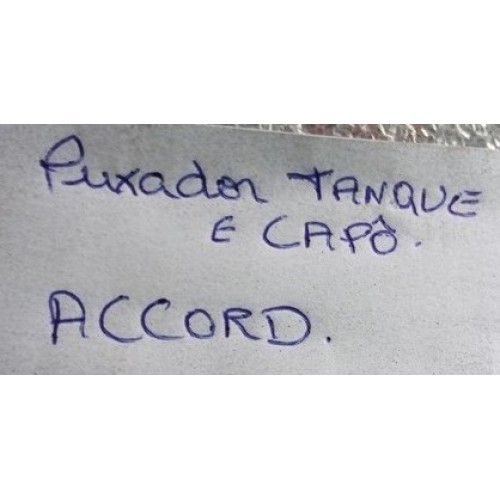 Puxador TANQUE
E CAPÔ.
ACCORD.